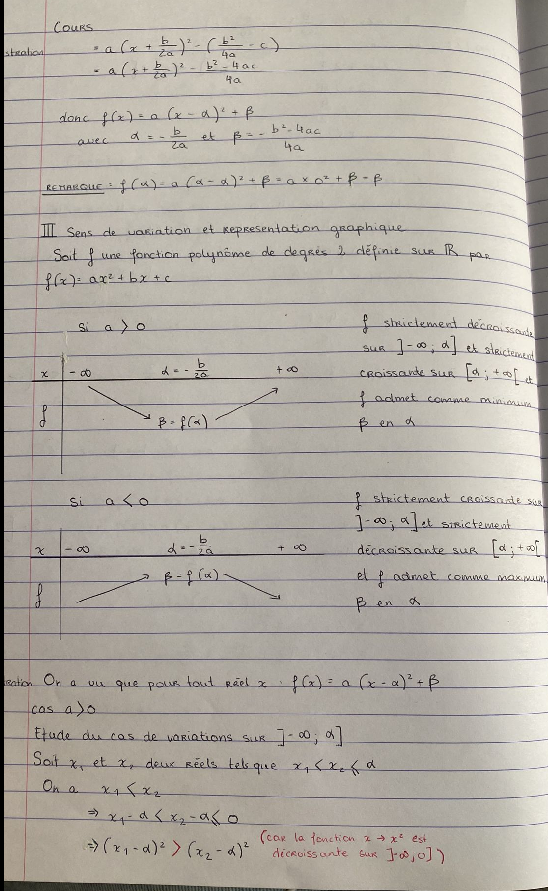 Cours
= a (x + b/2a)² - (b²/4a - c)
= a (x + b/2a)² - b² - 4ac/4a
donc f(x) = a (x - α)² + β
avec α = - b/2a et β = - b² - 4ac/4a
REMARQUE : f(α) = a (α - α)² + β = a × 0² + β = β
III Sens de variation et representation graphique
Soit f une fonction polynôme de degrés 2 définie sur ℝ par
f(x) = ax² + bx + c
Si a > 0
x -∞ α = - b/2a +∞
f β = f(α)
f strictement décroissante
sur ]-∞ ; α] et strictement
croissante sur [α ; +∞[ et
f admet comme minimum
β en α
Si a < 0
x -∞ α = - b/2a +∞
f β = f(α)
f strictement croissante sur
]-∞ ; α] et strictement
décroissante sur [α ; +∞[
et f admet comme maximum
β en α
On a vu que pour tout réel x : f(x) = a (x - α)² + β
cas a > 0
Etude du cas de variations sur ]-∞ ; α]
Soit x₁ et x₂ deux réels tels que x₁ < x₂ ⩽ α
On a x₁ < x₂
⇒ x₁ - α < x₂ - α ⩽ 0
⇒ (x₁ - α)² > (x₂ - α)² (car la fonction x → x² est
décroissante sur ]-∞, 0])